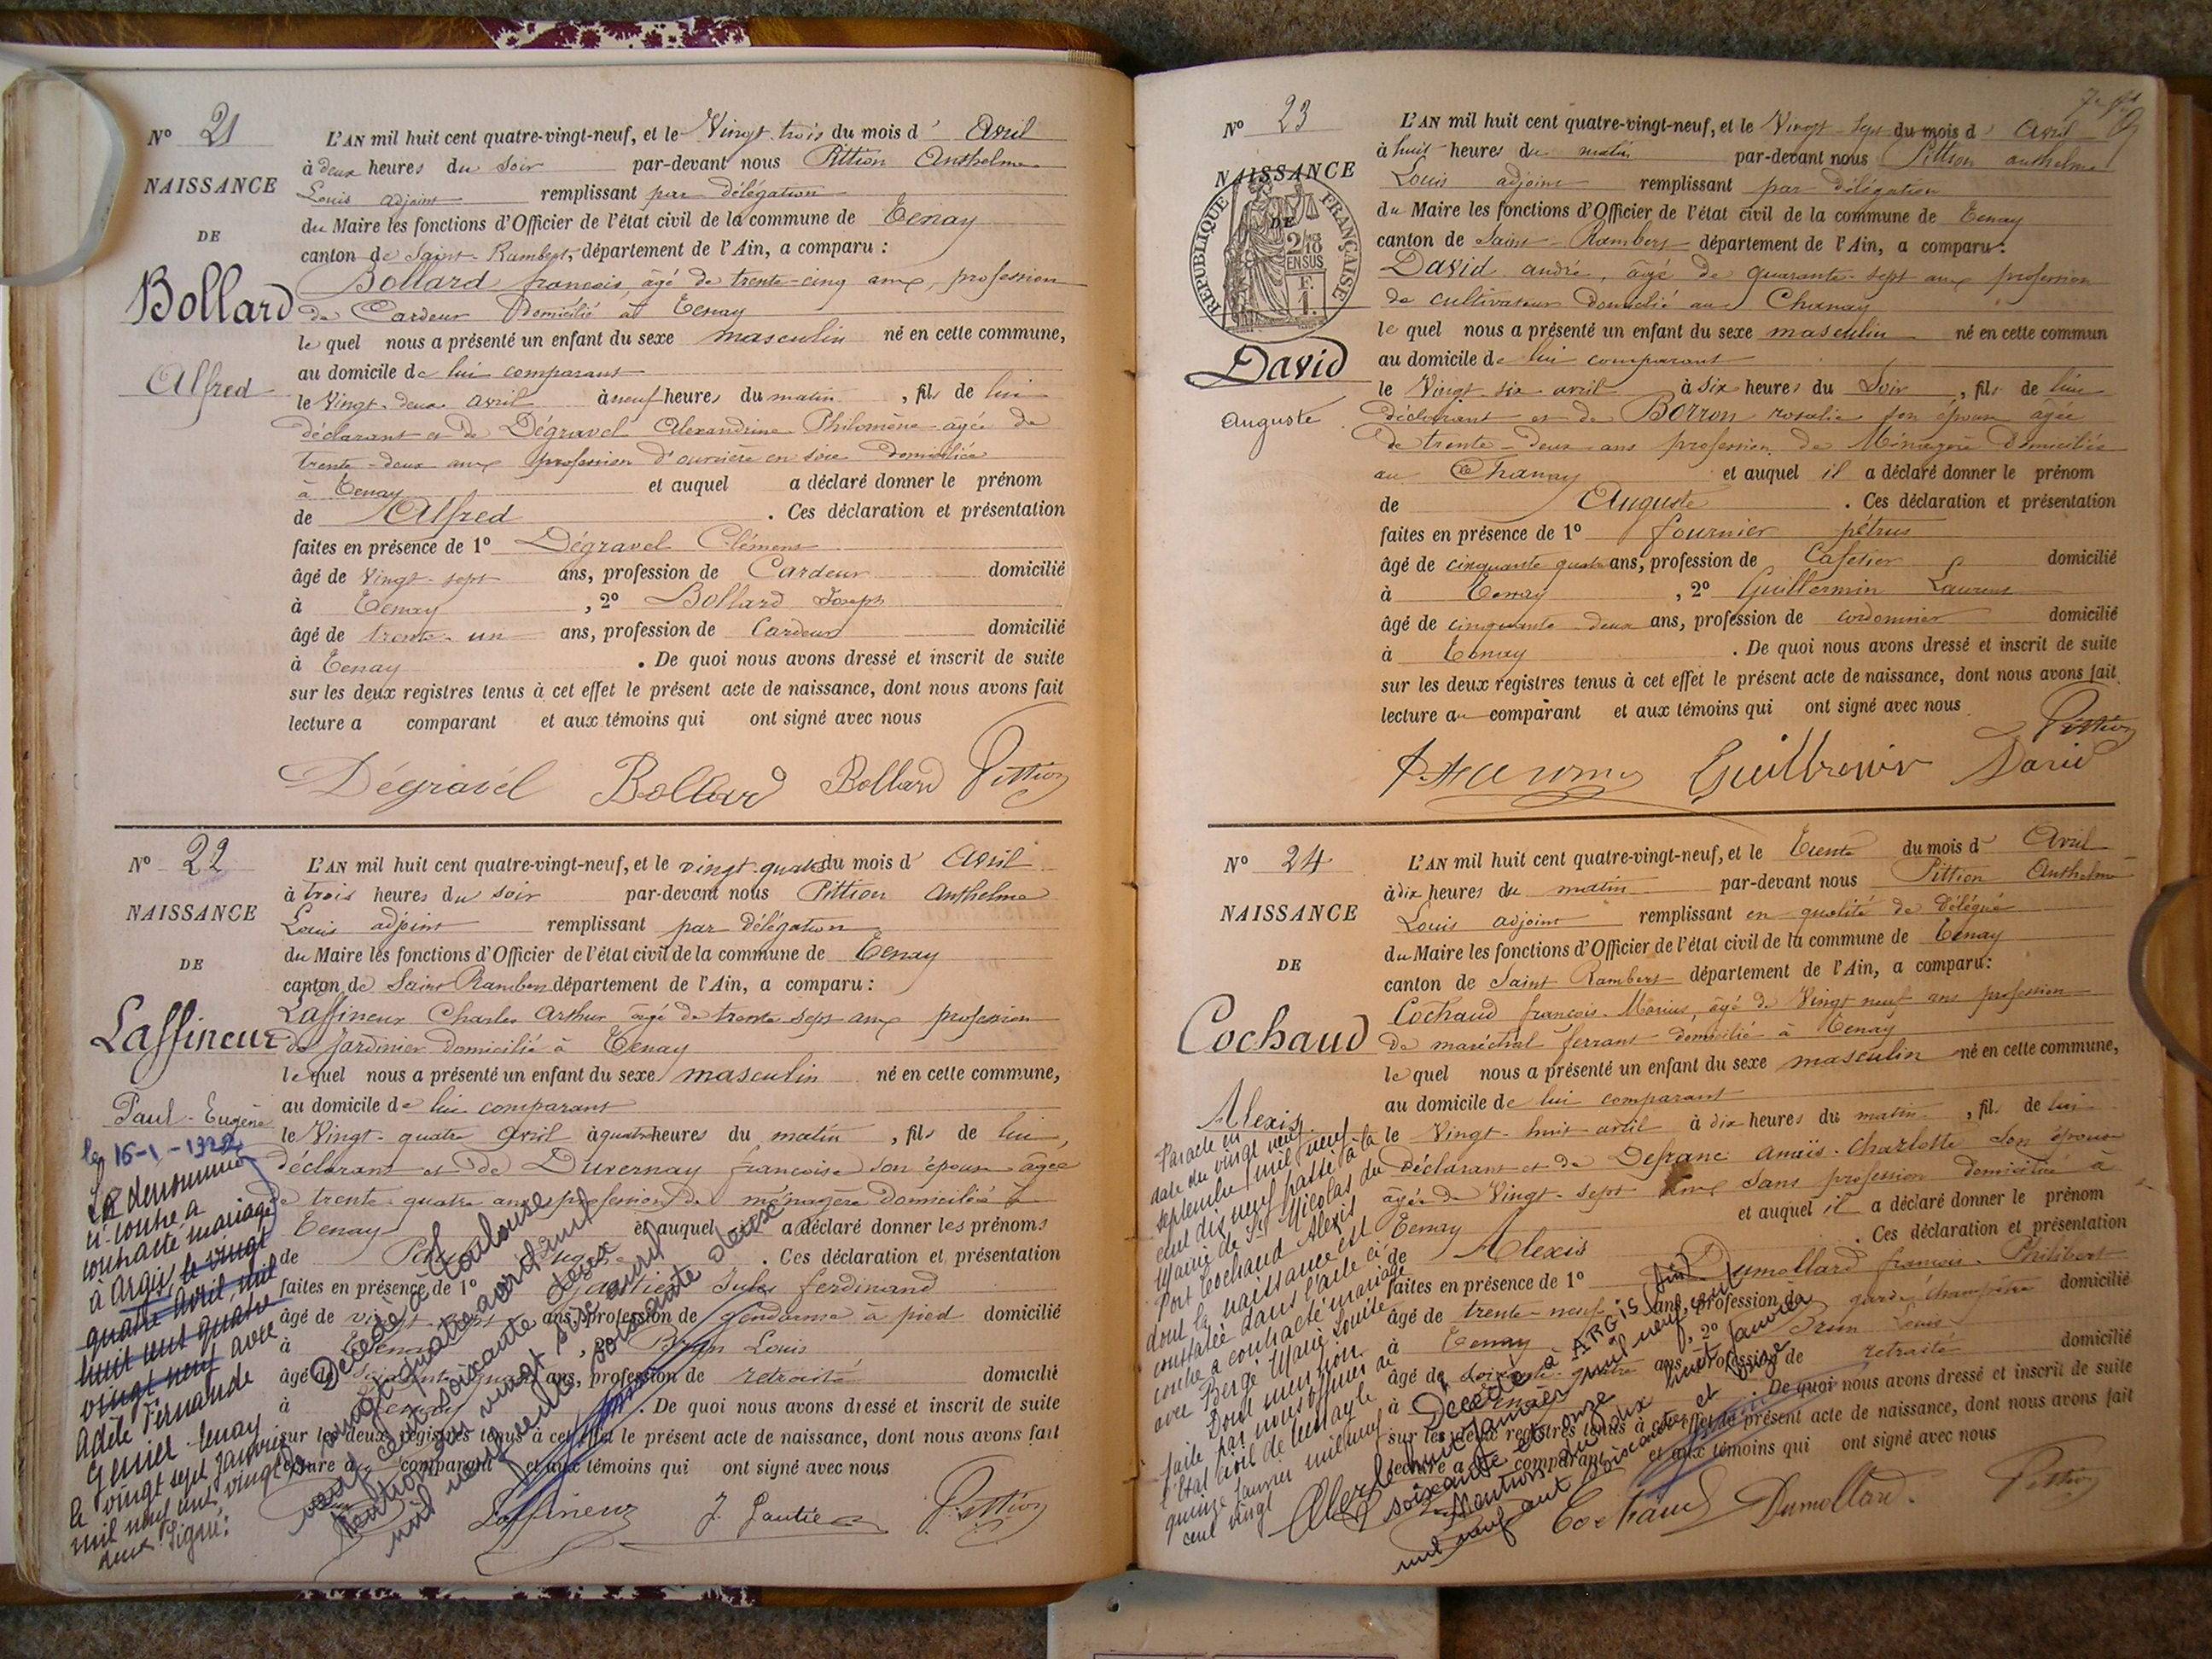 N° 21
NAISSANCE
DE
Bollard
Alfred
L'AN mil huit cent quatre-vingt-neuf, et le Vingt-trois du mois d' Avril
à deux heures du soir par-devant nous Pittion Anthelme
Louis adjoint remplissant par délégation
du Maire les fonctions d'Officier de l'état civil de la commune de Tenay
canton de Saint-Rambert, département de l'Ain, a comparu :
Bollard françois, âgé de trente-cinq ans, profession
de Cardeur Domicilié à Tenay
le quel nous a présenté un enfant du sexe masculin né en cette commune,
au domicile de lui comparant
le Vingt-deux avril à neuf heures du matin , fils de lui
déclarant et de Dégravel Alexandrine Philomène âgée de
trente-deux ans profession d'ouvrière en soie Domiciliée
à Tenay et auquel a déclaré donner le prénom
de Alfred . Ces déclaration et présentation
faites en présence de 1° Dégravel Clément
âgé de vingt-sept ans, profession de Cardeur domicilié
à Tenay , 2° Bollard Joseph
âgé de trente-un ans, profession de Cardeur domicilié
à Tenay . De quoi nous avons dressé et inscrit de suite
sur les deux registres tenus à cet effet le présent acte de naissance, dont nous avons fait
lecture a comparant et aux témoins qui ont signé avec nous
Dégravel Bollard Bollard Pittion
N° 22
NAISSANCE
DE
Laffineur
Paul-Eugène
L'AN mil huit cent quatre-vingt-neuf, et le vingt-quatre du mois d' Avril
à trois heures du soir par-devant nous Pittion Anthelme
Louis adjoint remplissant par délégation
du Maire les fonctions d'Officier de l'état civil de la commune de Tenay
canton de Saint Rambert département de l'Ain, a comparu :
Laffineur Charles Arthur âgé de trente sept ans profession
de Jardinier domicilié à Tenay
le quel nous a présenté un enfant du sexe masculin né en cette commune,
au domicile de lui comparant
le Vingt-quatre avril à quatre heures du matin , fils de lui,
déclarant et de Duvernay françoise son épouse âgée
de trente-quatre ans profession de ménagère domiciliée à
Tenay et auquel il a déclaré donner les prénoms
de Paul Eugène . Ces déclaration et présentation
faites en présence de 1° Gautier Jules ferdinand
âgé de vingt-sept ans, profession de gendarme à pied domicilié
à Tenay , 2° Brun Louis
âgé de soixante quatre ans, profession de retraité domicilié
à Tenay . De quoi nous avons dressé et inscrit de suite
sur les deux registres tenus à cet effet le présent acte de naissance, dont nous avons fait
lecture au comparant et aux témoins qui ont signé avec nous
Laffineur J. Gautier Pittion
le 16-1-1922
Le dénommé
ci-contre a
contracté mariage
à Argis, le vingt
quatre avril mil
huit cent quatre
vingt neuf avec
Adèle Fernande
Genier Tenay
le vingt sept Janvier
mil neuf cent vingt
deux Signé:
Décédé à Toulouse
le vingt quatre août mil
neuf cent soixante deux
Mention du vingt six août
mil neuf cent soixante deux
N° 23
NAISSANCE
DE
REPUBLIQUE FRANÇAISE
David
Auguste
L'AN mil huit cent quatre-vingt-neuf, et le Vingt-sept du mois d' Avril
à huit heures du matin par-devant nous Pittion anthelme
Louis adjoint remplissant par délégation
du Maire les fonctions d'Officier de l'état civil de la commune de Tenay
canton de Saint-Rambert département de l'Ain, a comparu :
David andré, âgé de quarante-sept ans profession
de cultivateur Domicilié au Chanay
le quel nous a présenté un enfant du sexe masculin né en cette commun
au domicile de lui comparant
le Vingt-six avril à six heures du Soir , fils de lui
déclarant et de Borron rosalie son épouse âgée
de trente-deux ans profession de Ménagère Domiciliée
au Chanay et auquel il a déclaré donner le prénom
de Auguste . Ces déclaration et présentation
faites en présence de 1° fournier pétrus
âgé de cinquante quatre ans, profession de Cafetier domicilié
à Tenay , 2° Guillermin Laurent
âgé de cinquante-deux ans, profession de cordonnier domicilié
à Tenay . De quoi nous avons dressé et inscrit de suite
sur les deux registres tenus à cet effet le présent acte de naissance, dont nous avons fait
lecture au comparant et aux témoins qui ont signé avec nous
Pittion
Guillermin David
N° 24
NAISSANCE
DE
Cochaud
Alexis
L'AN mil huit cent quatre-vingt-neuf, et le Trente du mois d' Avril
à dix heures du matin par-devant nous Pittion Anthelme
Louis adjoint remplissant en qualité de Délégué
du Maire les fonctions d'Officier de l'état civil de la commune de Tenay
canton de Saint Rambert département de l'Ain, a comparu:
Cochaud françois-Marius, âgé de Vingt neuf ans profession
de maréchal ferrant domicilié à Tenay
le quel nous a présenté un enfant du sexe masculin né en cette commune,
au domicile de lui comparant
le Vingt-huit avril à dix heures du matin , fils de lui
déclarant et de Defranc Amaïs-Charlotte son épouse
âgée de Vingt-sept ans sans profession domiciliée à
Tenay et auquel il a déclaré donner le prénom
Alexis . Ces déclaration et présentation
faites en présence de 1° Dumollard françois-Philibert
âgé de trente-neuf ans, profession de garde champêtre domicilié
à Tenay , 2° Brun Louis
âgé de soixante-quatre ans, profession de retraité domicilié
à Tenay . De quoi nous avons dressé et inscrit de suite
sur les deux registres tenus à cet effet le présent acte de naissance, dont nous avons fait
lecture a comparant et aux témoins qui ont signé avec nous
Cochaud Dumollard Pittion
Par acte en
date du vingt neuf
septembre mil neuf
cent dix neuf passé à la
Mairie de St Nicolas du
Port Cochaud Alexis
dont la naissance est
constatée dans l'acte ci
contre a contracté mariage
avec Bergé Marie Louise
Dont mention
faite par nous officier de
l'Etat civil de Tenay le
quinze Janvier mil neuf
cent vingt
Décédé à ARGIS (Ain)
le huit Janvier mil neuf cent
soixante et onze
Mention du huit Janvier
mil neuf cent soixante et onze